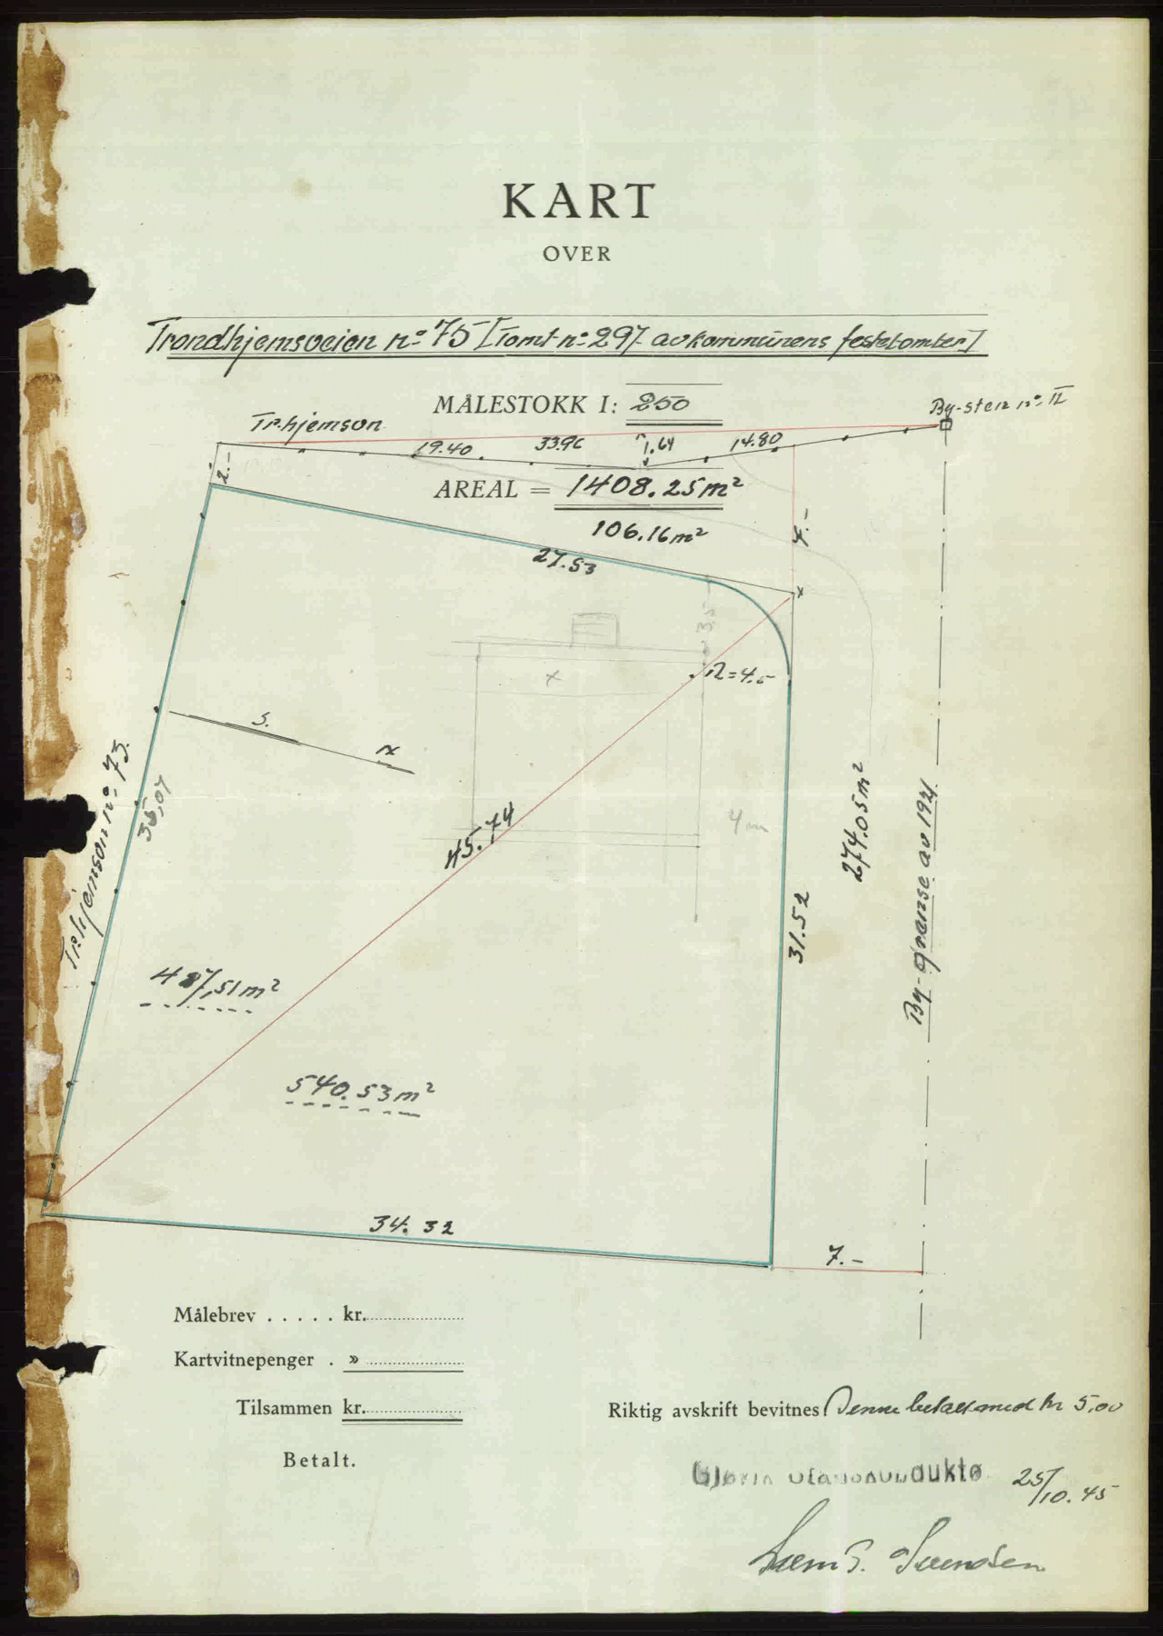 KART
OVER
Trondhjemsveien nº 75 [Tomt nº 297 av kommunens festetomter]
MÅLESTOKK 1: 250
By-sten nº II
Tr.hjemsvn
19.40
33.96
1.64
14.80
2.-
AREAL = 1408.25 m²
106.16 m²
4.-
27.53
3.5
R=4.5
S.
N
Tr.hjemsvn nº 73.
35,07
45.74
4 m
274.05 m²
By-grense av 1921
31.52
487,51 m²
540.53 m²
34.32
7.-
Målebrev . . . . . kr.
Kartvitnepenger . »
Tilsammen kr.
Riktig avskrift bevitnes Denne betalt med kr 5,00
Betalt.
25/10.45
Svendsen